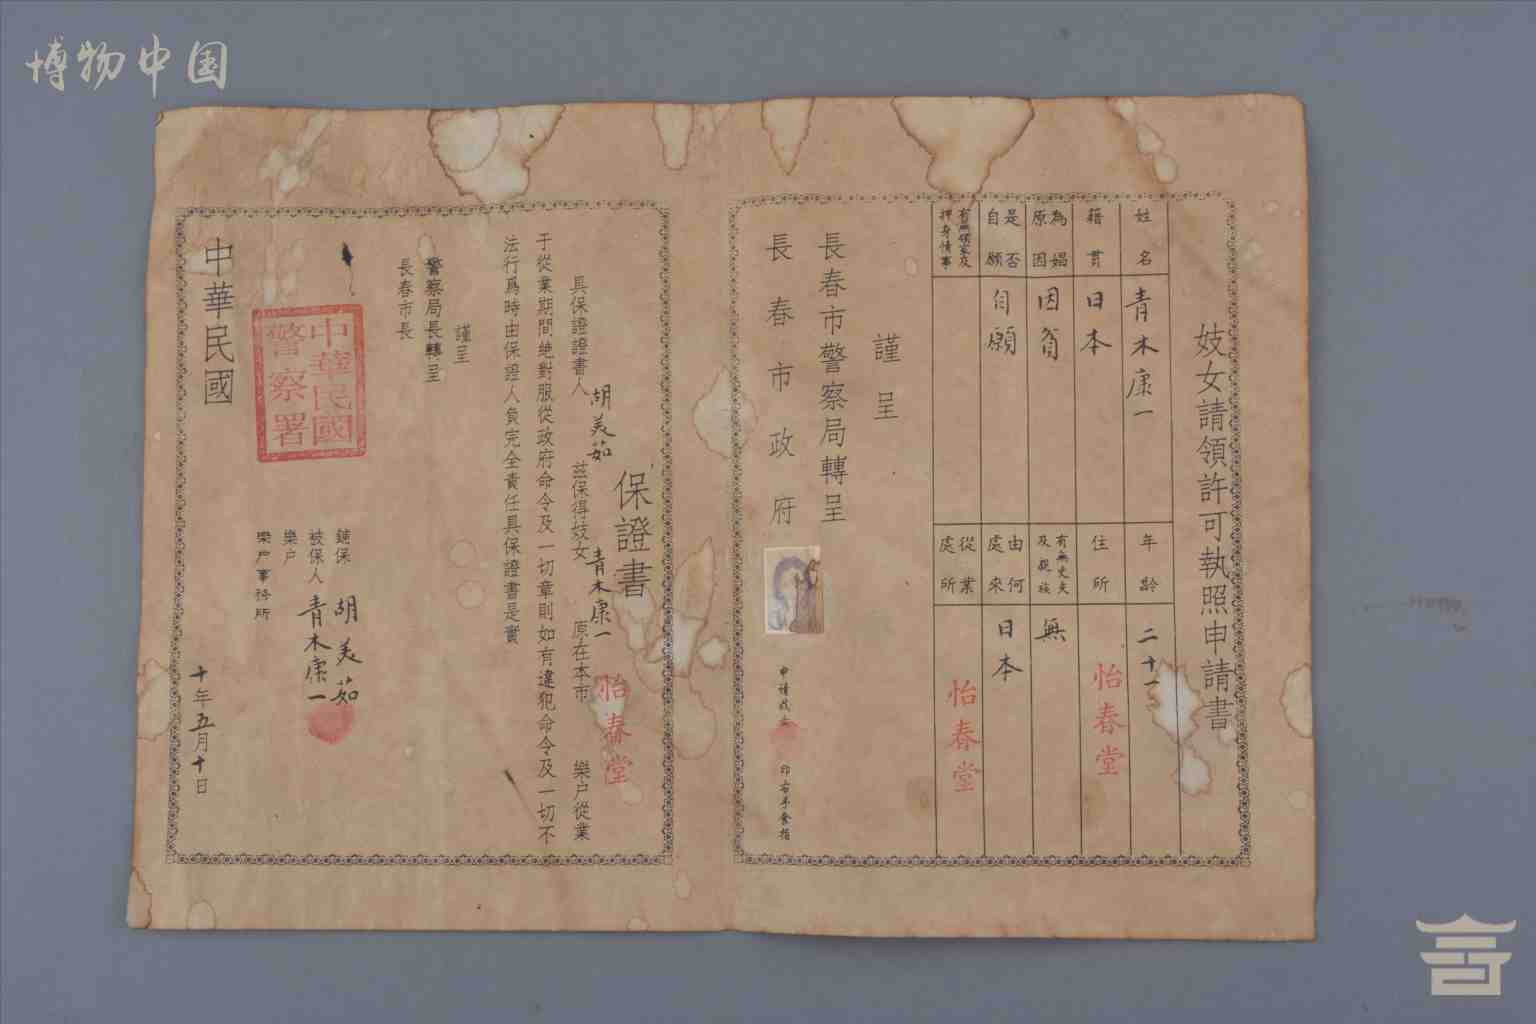 博物中国
妓女請領許可執照申請書
姓名 青木康一 年齡 二十一
籍貫 日本 住所 怡春堂
為娼原因 因貧 有無丈夫及親族 無
是否自願 自願 由何處來 日本
有無領家及押身情事 從業處所 怡春堂
謹呈
長春市警察局轉呈
長春市政府
申请妓女 印右手食指
保證書
具保證證書人 胡美茹 茲保得妓女 青木康一 原在本市 怡春堂 樂户從業
于從業期間絶對服從政府命令及一切章則如有違犯命令及一切不
法行爲時由保證人負完全責任具保證書是實
謹呈
警察局長轉呈
長春市長
鋪保 胡美茹
被保人 青木康一
樂户
樂户事務所
中華民國警察署
中華民國 十年五月十日